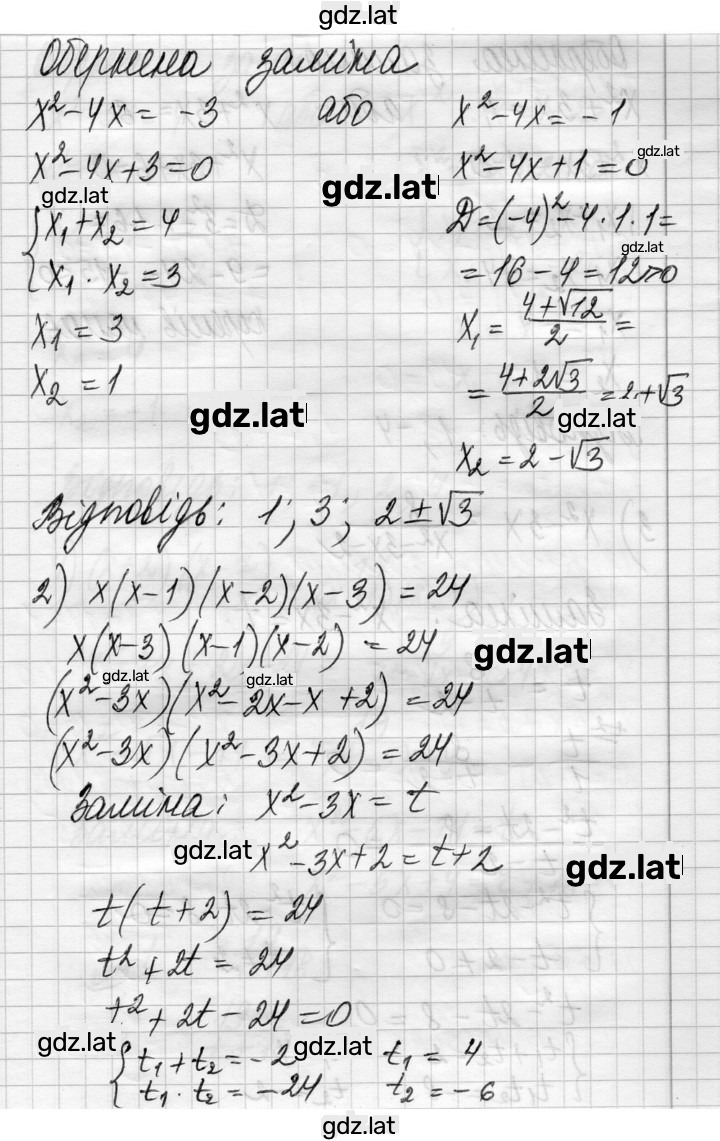 gdz.lat
Обернена заміна
x²-4x = -3 або x²-4x = -1
x²-4x+3=0 x²-4x+1=0
gdz.lat
gdz.lat
gdz.lat
{x₁+x₂=4 D=(-4)²-4·1·1=
gdz.lat
{x₁·x₂=3 =16-4=12>0
x₁=3 x₁=(4+√12)/2=
x₂=1 =(4+2√3)/2=2+√3
gdz.lat
gdz.lat
x₂=2-√3
Відповідь: 1; 3; 2±√3
2) x(x-1)(x-2)(x-3)=24
x(x-3)(x-1)(x-2)=24
gdz.lat
gdz.lat
gdz.lat
(x²-3x)(x²-2x-x+2)=24
(x²-3x)(x²-3x+2)=24
Заміна: x²-3x=t
gdz.lat
x²-3x+2=t+2
gdz.lat
t(t+2)=24
t²+2t=24
t²+2t-24=0
gdz.lat
gdz.lat
{t₁+t₂=-2 t₁=4
{t₁·t₂=-24 t₂=-6
gdz.lat